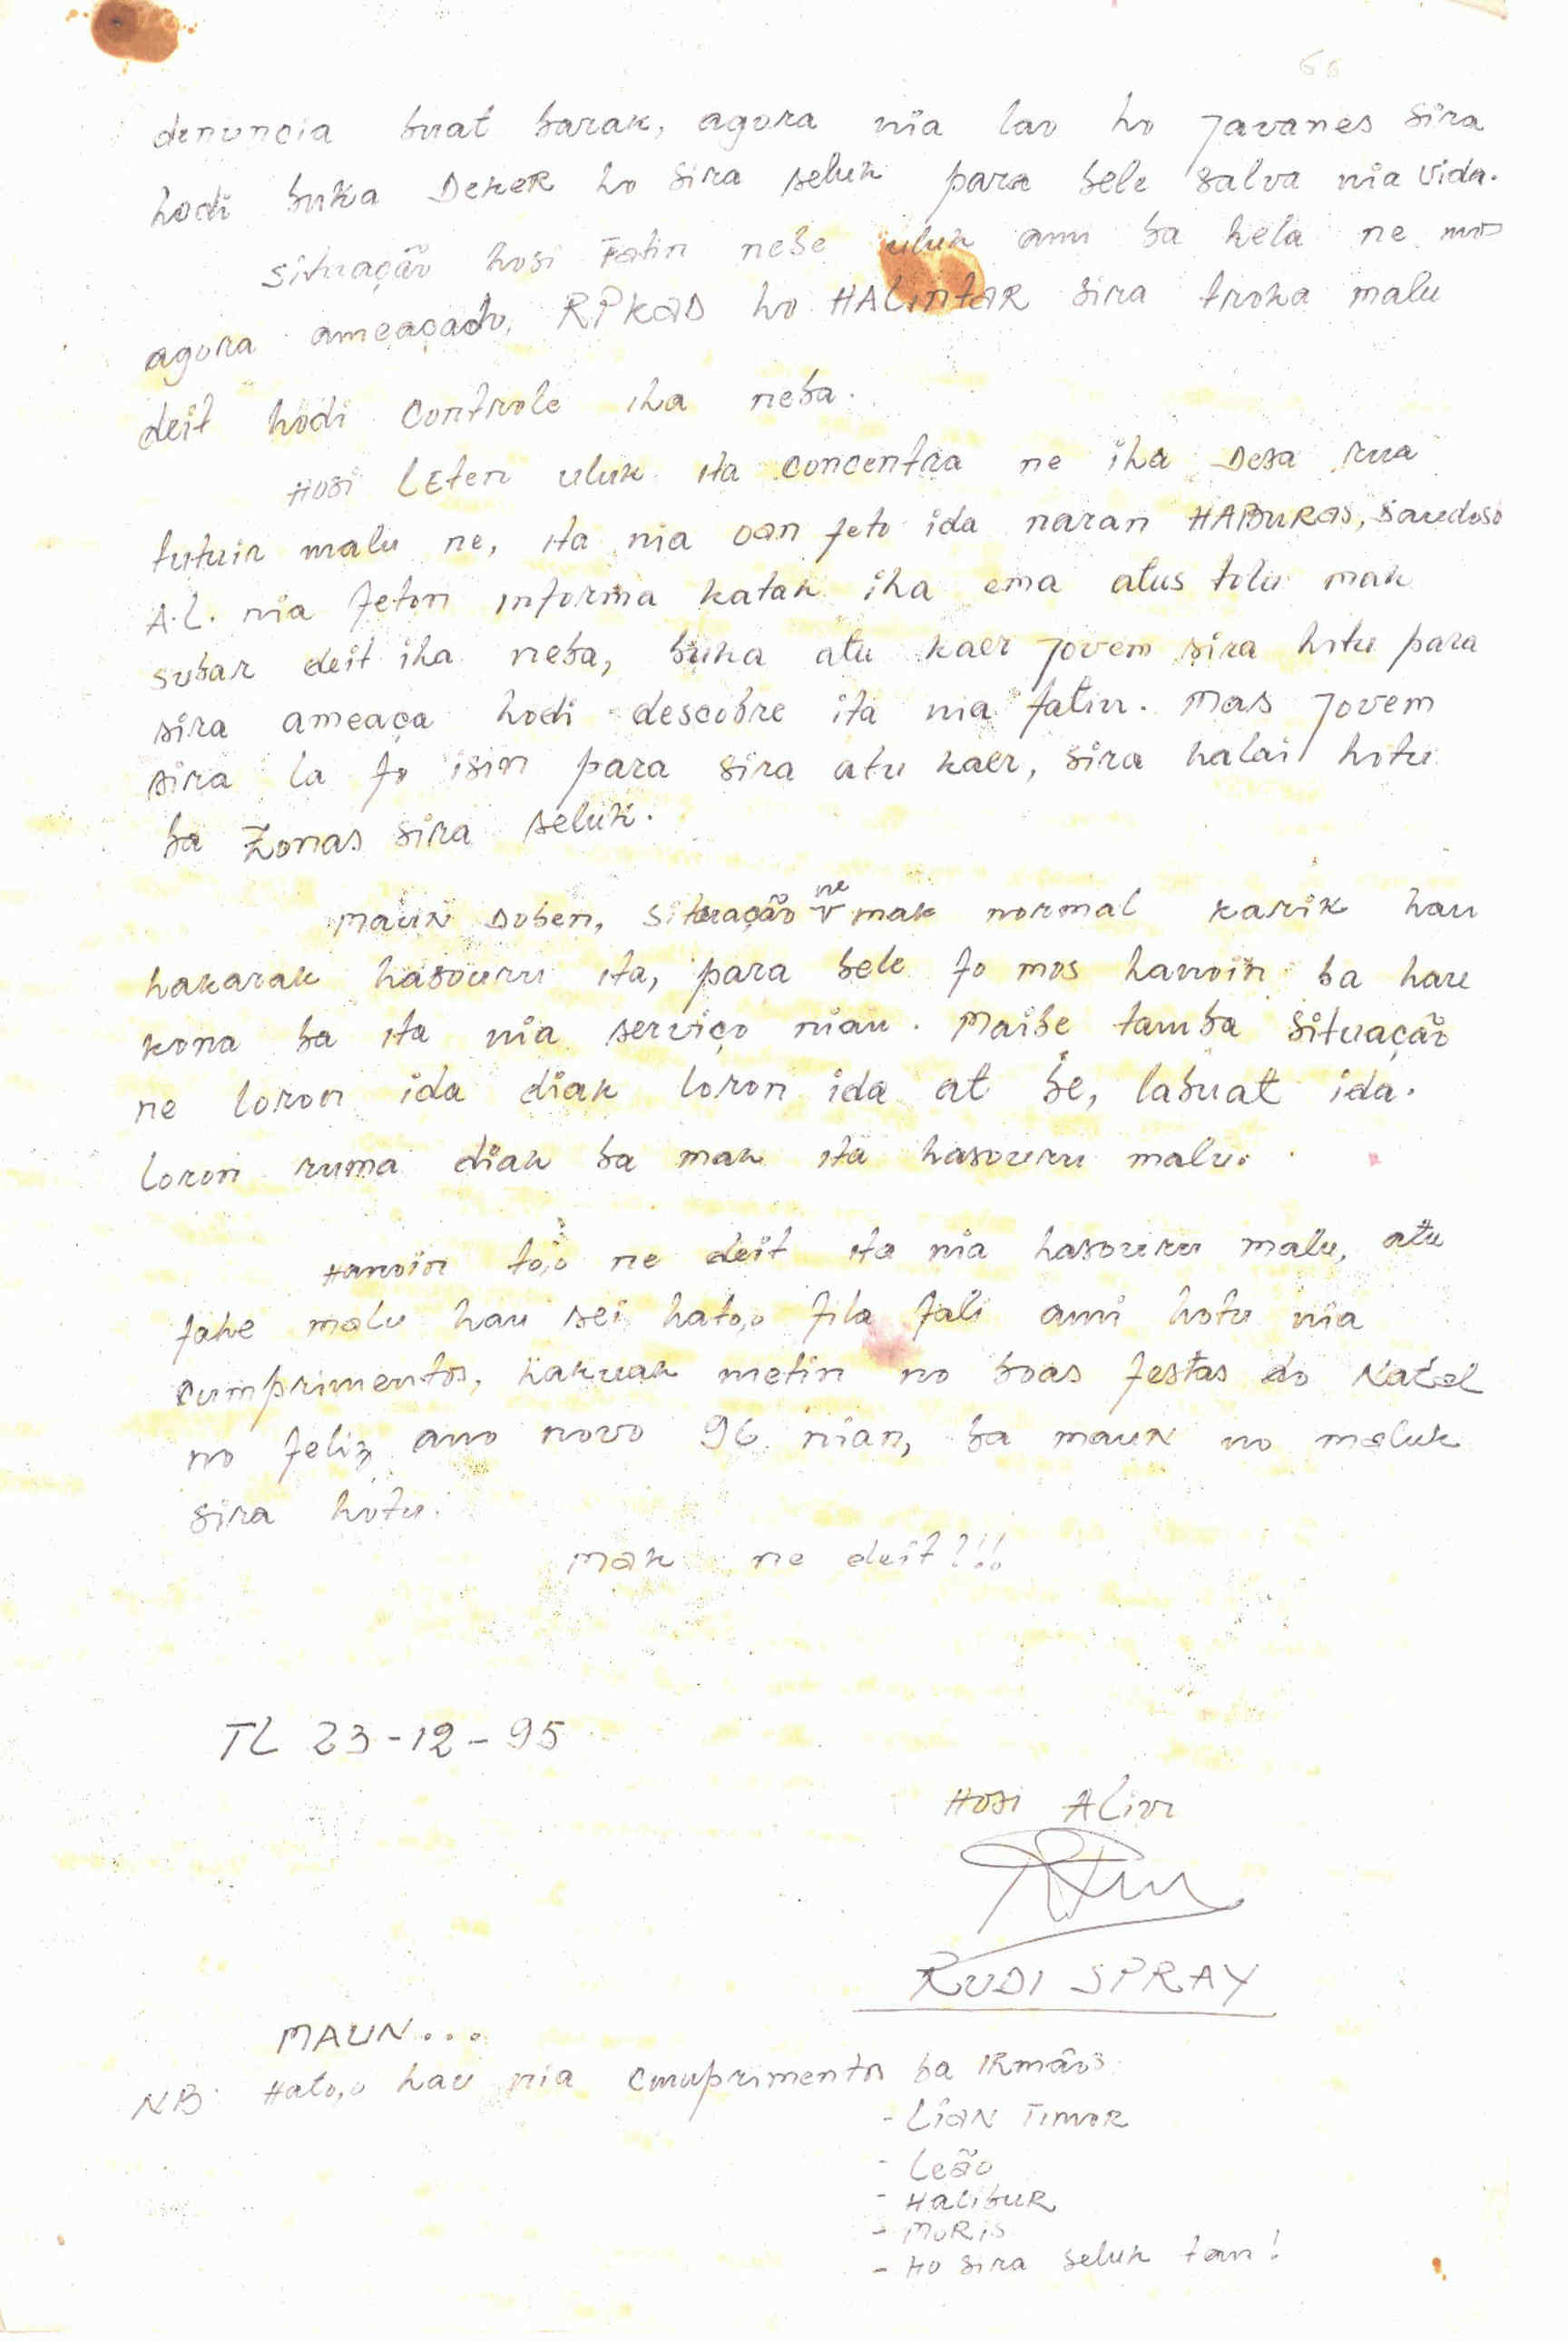 66
denuncia buat barak, agora nia lao ho Javanes sira
hodi buka DEKER ho sira seluk para bele salva nia vida.
Situação hosi Fatin nebe uluk ami ba hela ne mos
agora ameaçado, RPKAD ho HALINTAR sira troka malu
deit hodi Controle iha neba.
HOSI LETEN uluk ita concentra ne iha Desa rua
tutuir malu ne, ita nia oan feto ida naran HABURAS, saudoso
A.L. nia feton informa katak iha ema atus tolu mak
subar deit iha neba, buka atu kaer Jovem sira hotu para
sira ameaça hodi descobre ita nia fatin. Mas Jovem
sira la fo isin para sira atu kaer, sira halai hotu
ba Zonas sira seluk.
MAUN DOBEN, Situação ne mak normal karik hau
hakarak hasouru ita, para bele fo mos hanoin ba hau
kona ba ita nia serviço nian. Maibe tamba Situação
ne loron ida diak loron ida at be, labuat ida.
Loron ruma diak ba mak ita hasouru malu.
Hanoin to,o ne deit ita nia hasouru malu, atu
fahe malu hau sei hato,o fila fali ami hotu nia
Cumprimentos, hakuak metin no boas festas do Natal
no feliz ano novo 96 nian, ba maun no maluk
sira hotu.
Mak ne deit?!!
TL 23-12-95
HOSI ALIN
RUDI SPRAY
MAUN...
NB: Hato,o hau nia Cumprimentos ba IRmãos:
- LIAN TIMOR
- Leão
- HALIBUR
- MORIS
- HO sira seluk tan!